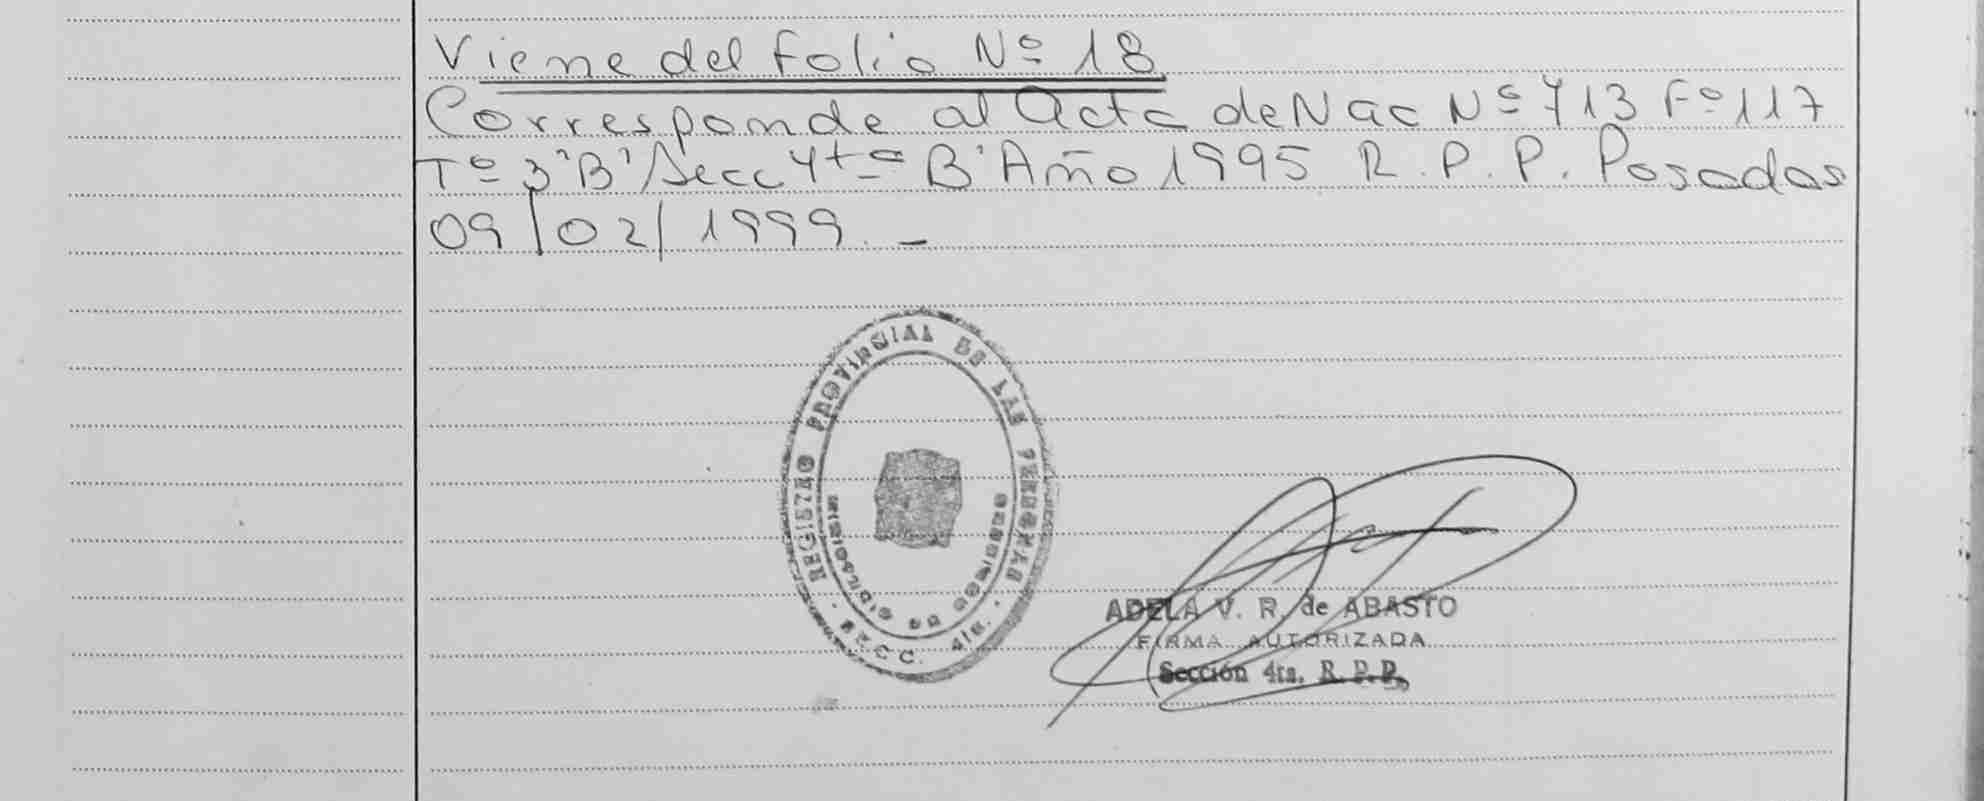 Viene del folio Nº 18
Corresponde al Acta de Nac Nº 713 Fº 117
Tº 3 "B" Secc 4tª "B" Año 1995 R.P.P. Posadas
09/02/1999.-
REGISTRO PROVINCIAL DE LAS PERSONAS
SECC. 4ta.
ADELA V. R. de ABASTO
FIRMA AUTORIZADA
Sección 4ta. R.P.P.